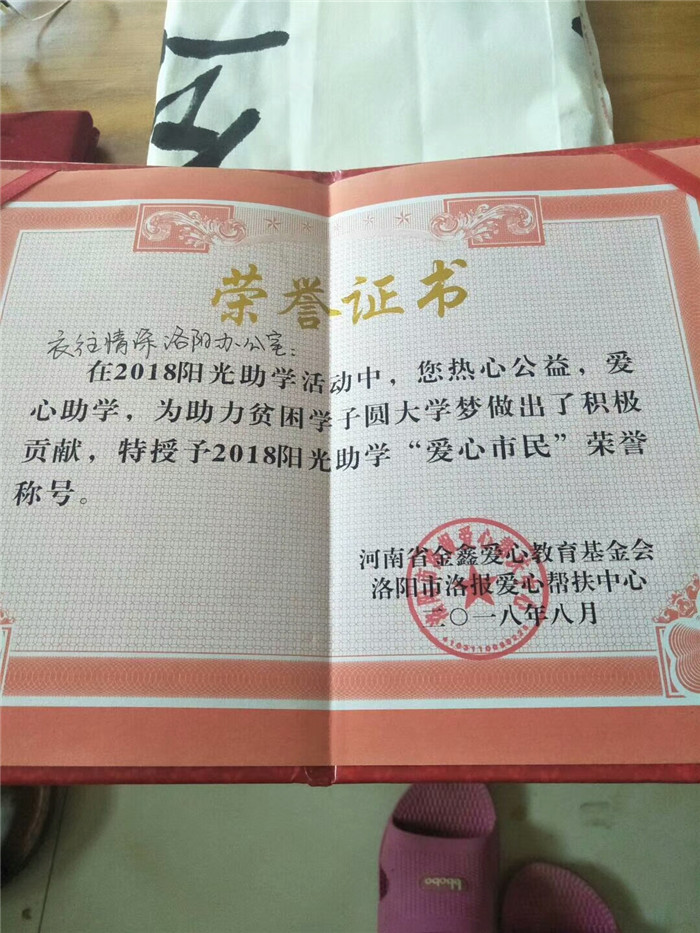 荣誉证书
衣往情深洛阳办公室：
在2018阳光助学活动中，您热心公益，爱
心助学，为助力贫困学子圆大学梦做出了积极
贡献，特授予2018阳光助学“爱心市民”荣誉
称号。
河南省金鑫爱心教育基金会
洛阳市洛报爱心帮扶中心
二〇一八年八月